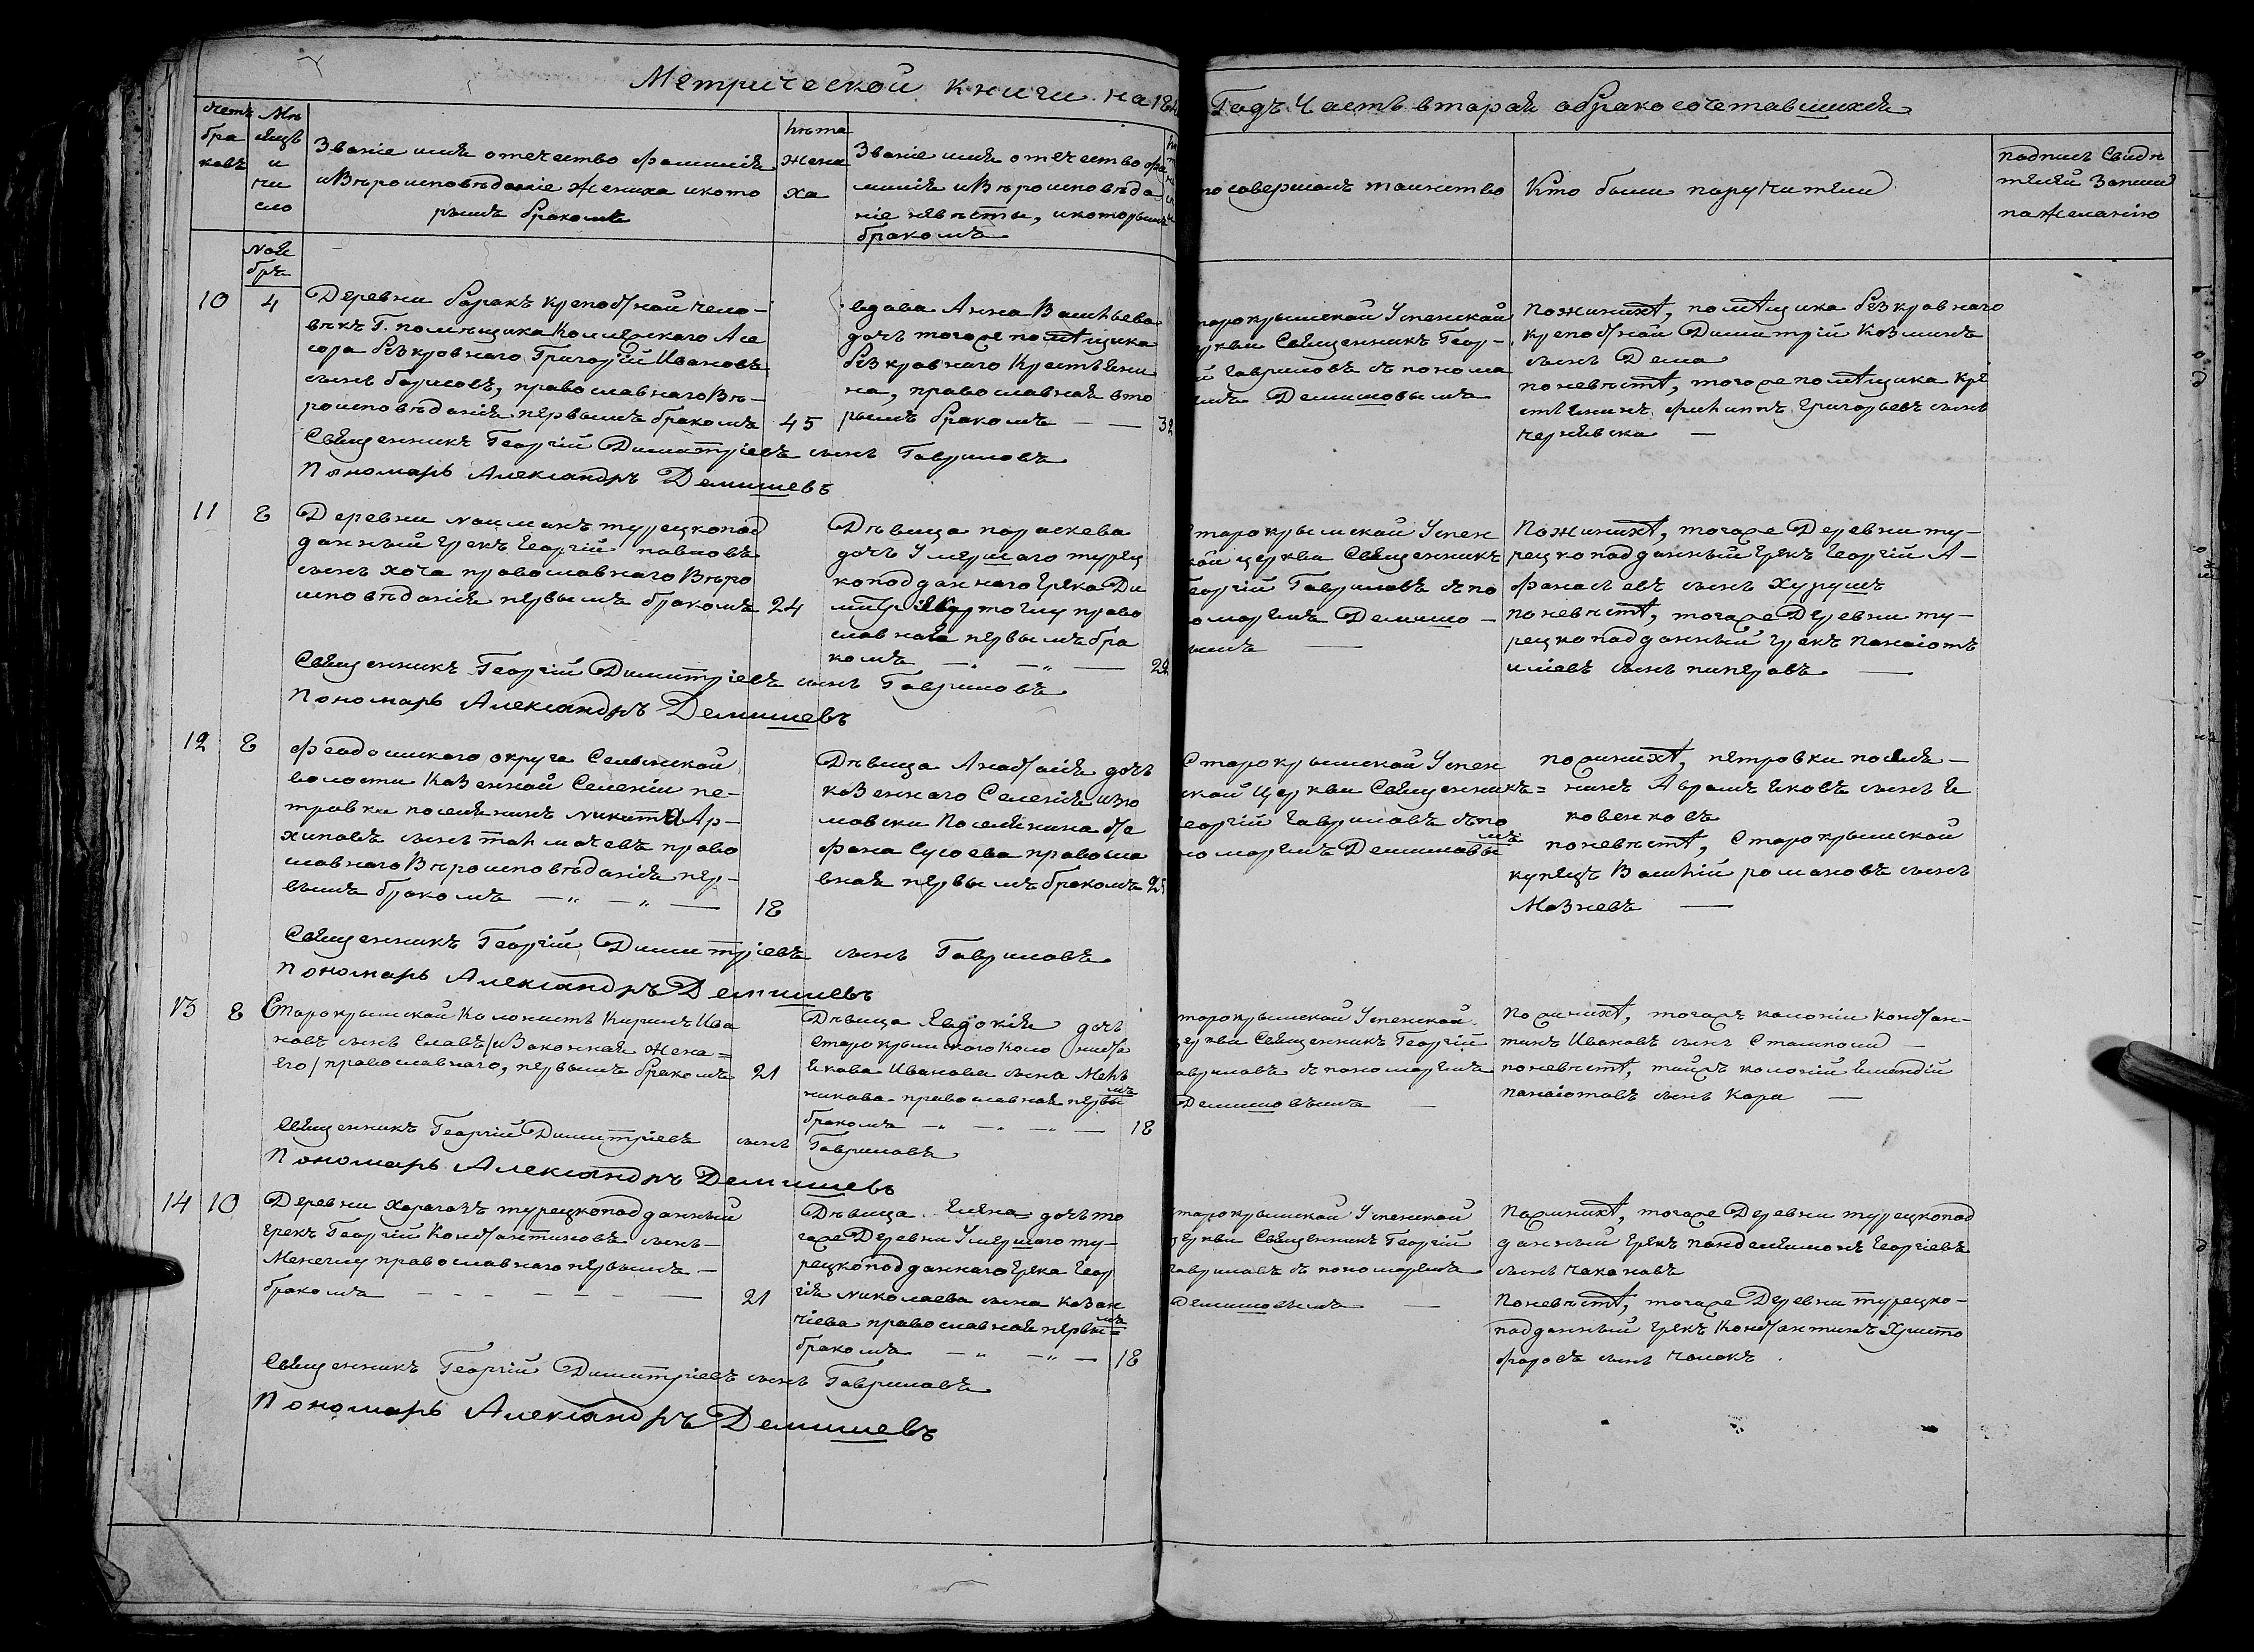 Метрической книги на 184
Годъ Часть вторая о бракосочетавшихся
Счетъ
бра
ковъ
Мѣ
сяцъ
и
чи
сло
Званіе имя отечество фамилія
и Вѣроисповѣданіе жениха и кото
рымъ бракомъ
Лѣта
жени
ха
Званіе имя отечество фа
милія и Вѣроисповѣда
ніе невѣсты, и которымъ
бракомъ
то совершалъ таинство
Кто были поручители
подпись Свидѣ
телей Записи
по желанію
Ноя
бря
10
4
Деревни баракъ крепостной чело-
вѣкъ Г. помѣщика Коллежскаго Асе
сора безкровнаго Григорій Ивановъ
сынъ борисовъ, православнаго Вѣ-
роисповѣданія первымъ бракомъ
45
вдова Анна Васильева
дочь тогоже помѣщика
безкровнаго Крестьяни
на, православная вто
рымъ бракомъ — —
32
тарокрымской Успенской
ркви Священникъ Геор-
й Гавриловъ съ понома
емъ Демишовымъ
По женихѣ, помѣщика безкровнаго
крепостной Димитрій Козминъ
сынъ Дема
по невѣстѣ, тогоже помѣщика кре
стьянинъ филиппъ григорьевъ сынъ
чернявска —
Священникъ Георгій Димитріевъ сынъ Гавриловъ
Пономарь Александръ Демишевъ
11
8
Деревни найманъ турецкопод
данный грекъ Георгій павловъ
сынъ хоча православнаго Вѣро
исповѣданія первымъ бракомъ
24
Дѣвица параскева
дочь умершаго турец
коподданнаго грека Ди
православная первымъ бра
комъ — —
22
тарокрымской Успен
кой церкви Священникъ
еоргій Гавриловъ съ по
омаремъ Демишо-
ымъ —
По женихѣ, тогоже Деревни ту-
рецкоподданный грекъ Георгій А-
фанасьевъ сынъ Хурушъ
по невѣстѣ, тогоже Деревни ту-
рецкоподданный грекъ панаіотъ
иліевъ сынъ пиперовъ —
Священникъ Георгій Димитріевъ сынъ Гавриловъ
Пономарь Александръ Демишевъ
12
8
Феодосійскаго округа Салынской
волости Казенной Селеніи пе-
тровки поселянинъ никита Ар-
хиповъ сынъ толмачевъ право
славнаго Вѣроисповѣданія пер-
вымъ бракомъ — — —
18
Дѣвица Анастасія дочь
казеннаго Селенія изю
мовки Поселянина сте
фана Сусоева правосла
вная первымъ бракомъ
Старокрымской Успен
ской Церкви Священникъ
еоргій гавриловъ съ по
номаремъ Демишовымъ
по женихѣ, петровки поселя-
нинъ Абрамъ яковъ сынъ я
ковенковъ
по невѣстѣ, Старокрымской
купецъ Василій романовъ сынъ
Мазневъ —
Священникъ Георгій Димитріевъ сынъ Гавриловъ
Пономарь Александръ Демишевъ
13
8
Старокрымской Колонистъ Кирилъ Ива
новъ сынъ Славъ /и Законная жена
его/ православнаго, первымъ бракомъ
21
Дѣвица Явдокія дочь
Старокрымскаго Колониста
якова Иванова сына Мель
никова православная первымъ
бракомъ — — — —
18
тарокрымской Успенской
еркви Священникъ Георгій
авриловъ съ пономаремъ
Демишовымъ —
По женихѣ, тогожъ колоніи Констан-
тинъ Ивановъ сынъ Стамполи —
по невѣстѣ, тойжъ колоніи
панаіотовъ сынъ Кара —
Священникъ Георгій Димитріевъ сынъ Гавриловъ
Пономарь Александръ Демишевъ
14
10
Деревни Карагозъ турецкоподданный
грекъ Георгій Константиновъ сынъ
Менечлу православнаго первымъ —
бракомъ — — — —
21
Дѣвица Елена дочь то
гоже Деревни Умершаго ту-
рецкоподданнаго грека Геор
гія николаева сына Казан
чіева православная первымъ
бракомъ — — —
18
тарокрымской Успенской
еркви Священникъ Георгій
гавриловъ съ пономаремъ
Демишовымъ —
По женихѣ, тогоже Деревни турецкопод
данный грекъ Панделеимонъ Георгіевъ
сынъ чакановъ
По невѣстѣ, тогоже Деревни турецко-
подданный грекъ Константинъ Христо
форовъ сынъ чолакъ.
Священникъ Георгій Димитріевъ сынъ Гавриловъ
Пономарь Александръ Демишевъ